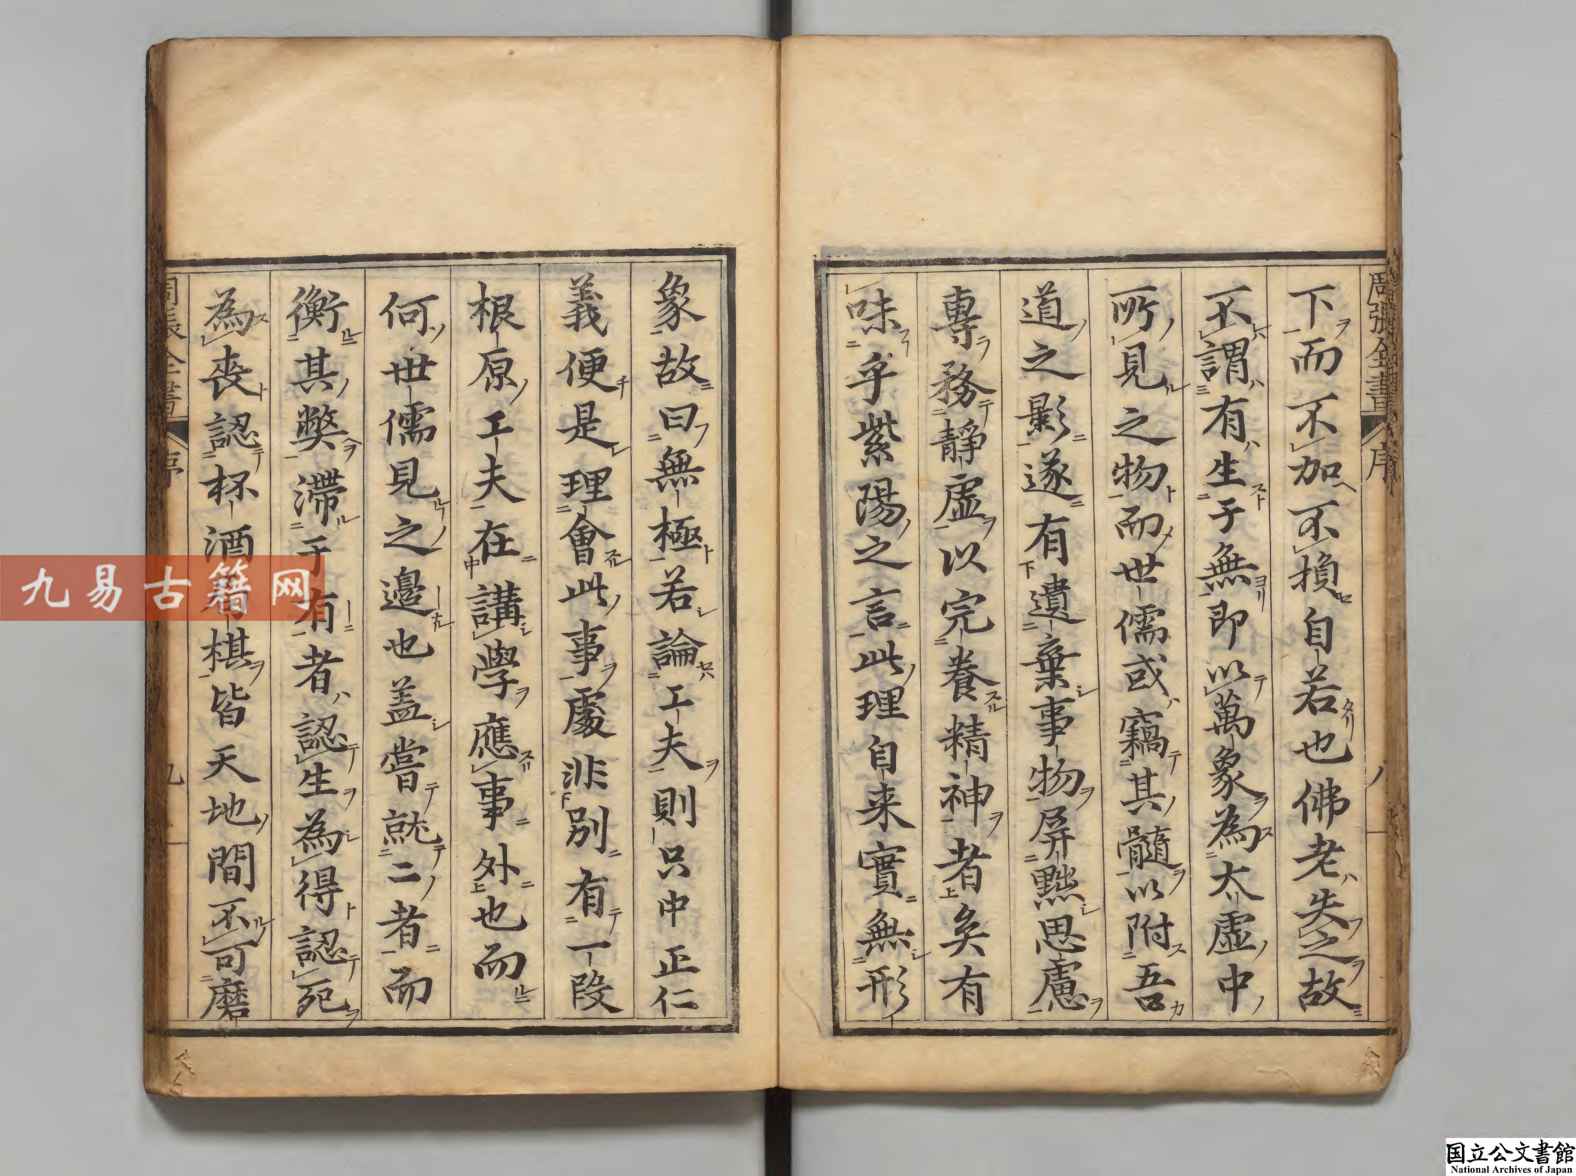 周張全書 序 八
下而不加不損自若也佛老失之故
不謂有生于無即以萬象為太虛中
所見之物而世儒或竊其髓以附吾
道之影遂有遺棄事物屏黜思慮
專務靜虛以完養精神者矣有
味乎紫陽之言此理自来實無形
象故曰無極若論工夫則只中正仁
義便是理會此事處非別有一段
根原工夫在講學應事外也而
何世儒見之邊也盖嘗就二者而
衡其獘滯于有者認生為得認死
為喪認杯酒棋皆天地間不可磨
周張全書 序 九
九易古籍网
国立公文書館
National Archives of Japan